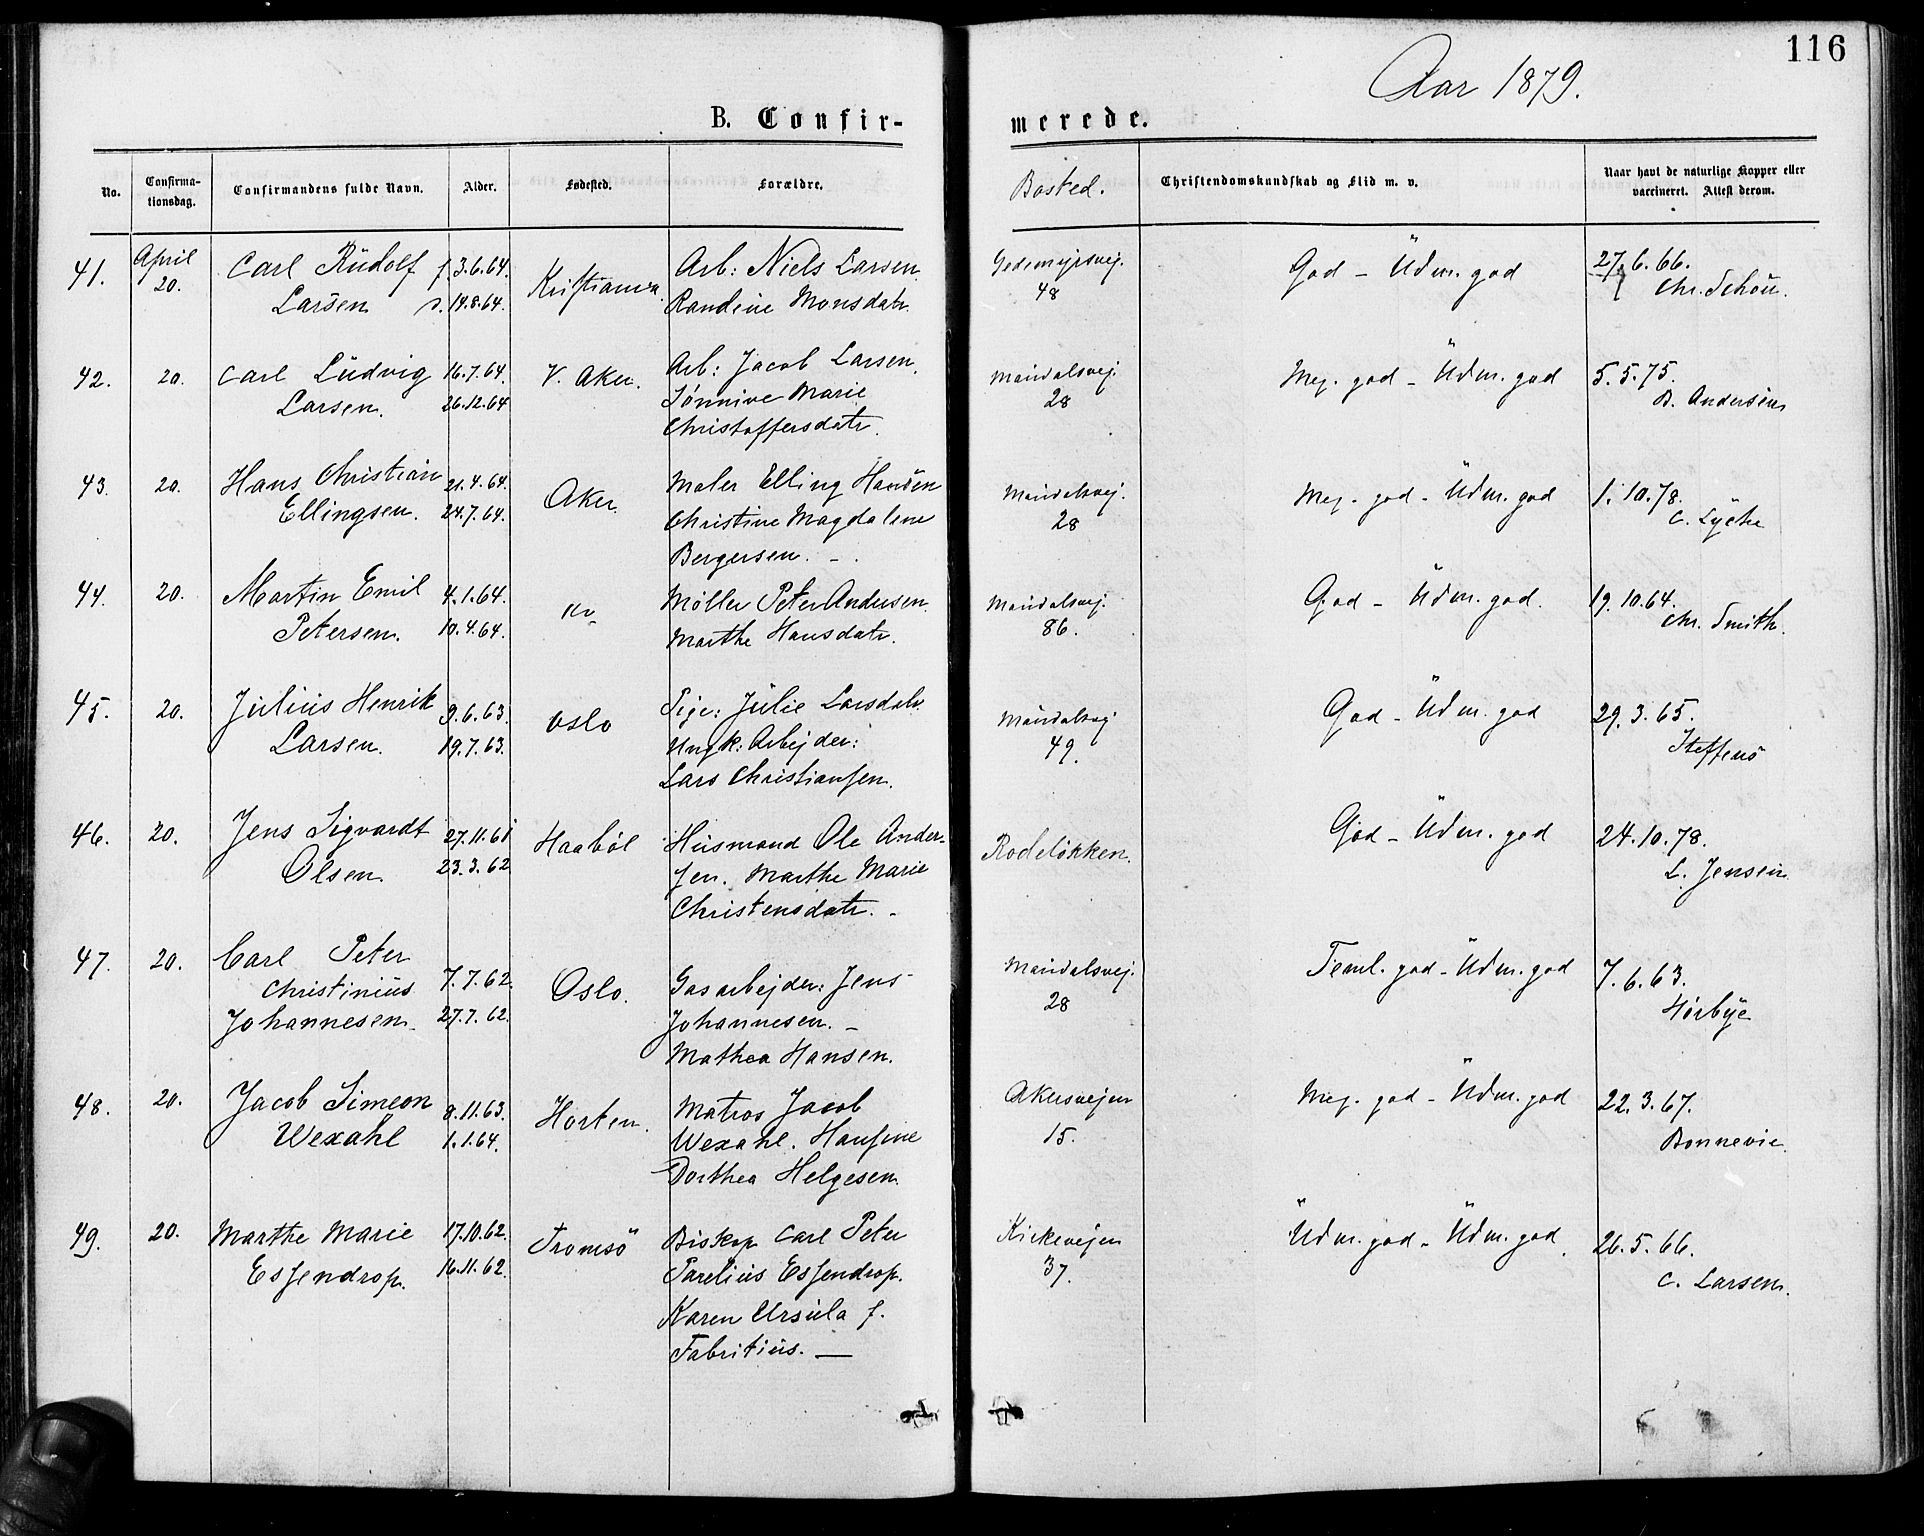 116
Aar 1879.
B. Confir-
merede.
No.
Confirma-
tionsdag.
Confirmandens fulde Navn.
Alder.
Fødested.
Forældre.
Bosted.
Christendomskundskab og Flid m. v.
Naar havt de naturlige Kopper eller
vaccineret. Attest derom.
41.
April
20.
Carl Rudolf
Larsen
f. 3.6.64.
d. 14.8.64.
Kristiania
Arb: Niels Larsen
Randine Monsdatr.
Gedemyrsvej.
48
God - Udm. god
27.6.66.
Chr. Schou.
42.
20.
Carl Ludvig
Larsen.
16.7.64.
26.12.64
V. Aker.
Arb: Jacob Larsen,
Sønnive Marie
Christoffersdatr.
Maridalsvej.
28
Meg. god - Udm. god
5.5.75.
B. Andersen
43.
20.
Hans Christian
Ellingsen.
21.4.64.
24.7.64.
Aker.
Maler Elling Hansen
Christine Magdalene
Bergersen. -
Maridalsvej.
28
Meg. god - Udm. god
1.10.78.
C. Lyche
44.
20.
Martin Emil
Petersen.
4.1.64.
10.4.64.
Kr.
Møller Peter Andersen.
Marthe Hansdatr.
Maridalsvej.
86.
God - Udm. god.
19.10.64.
Chr. Smith.
45.
20.
Julius Henrik
Larsen.
9.6.63.
19.7.63.
Oslo
Pige: Julie Larsdatr.
Ungk: Arbejder:
Lars Christiansen.
Maridalsvej
49.
God - Udm. god
29.3.65.
Steffens
46.
20.
Jens Sigvardt
Olsen.
27.11.61
23.3.62
Haabøl
Husmand Ole Ander-
sen. Marthe Marie
Christensdatr. -
Rodeløkken.
God - Udm. god
24.10.78.
L. Jensen
47.
20.
Carl Peter
Christinius
Johannesen.
7.7.62.
27.7.62.
Oslo.
Gasarbejder: Jens
Johannesen. -
Mathea Hansen.
Maridalsvej.
28
Teml. god - Udm. god
7.6.63.
Hørbye
48.
20.
Jacob Simeon
Wexahl
8.11.63.
1.1.64.
Horten.
Matros Jacob
Wexahl. Hansine
Dorthea Helgesen.
Akersvejen
15.
Meg. god - Udm. god
22.3.67.
Bonnevie.
49.
20.
Marthe Marie
Essendrop.
17.10.62.
16.11.62.
Tromsö
Biskop Carl Peter
Parelius Essendrop.
Karen Ursula f.
Fabritius. —
Kirkevejen
37.
Udm. god - Udm. god.
26.5.66.
C. Larsen.